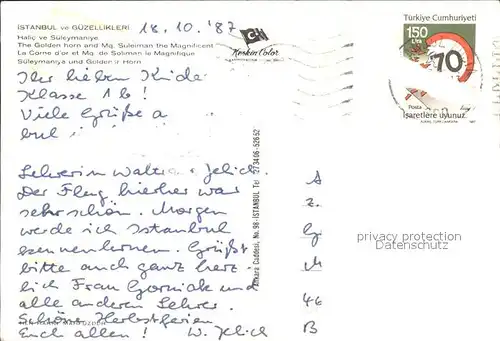 İSTANBUL ve GÜZELLİKLERİ
Haliç ve Süleymaniye
The Golden horn and Mq. Suleiman the Magnificent
La Corne d'or et Mq. de Soliman le Magnifique
Süleymaniya und Golden r Horn
18.10.'87
Keskin Color
Türkiye Cumhuriyeti
150
Lira
70
Posta
İşaretlere uyunuz
Ihr lieben Kinder
Klasse 1b!
Viele Grüße a
bul
Lehrerin Jelich.
Der Flug hierher war
sehr schön. Morgen
werde ich Istanbul
kennenlernen. Grüßt
bitte auch ganz herz-
lich Frau Gorniak und
alle anderen Lehrer.
Schöne Herbstferien
Euch allen! W. Jelich
Ankara Caddesi, No. 98-İSTANBUL Tel 273406-52652
A
z.
G
M
46
B
privacy protection
Datenschutz